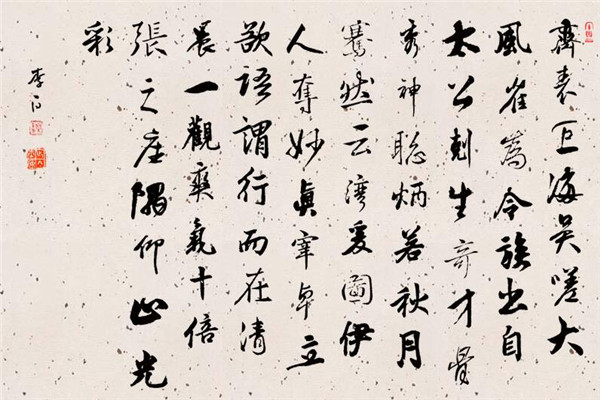 齊表巨海吳嗟大
風崔為令族出自
太公剋生奇才骨
秀神聡炳若秋月
騫然云鴻爰圖伊
人奪妙真宰卓立
欲語謂行而在清
晨一觀爽氣十倍
張之座隅仰止光
彩
李白